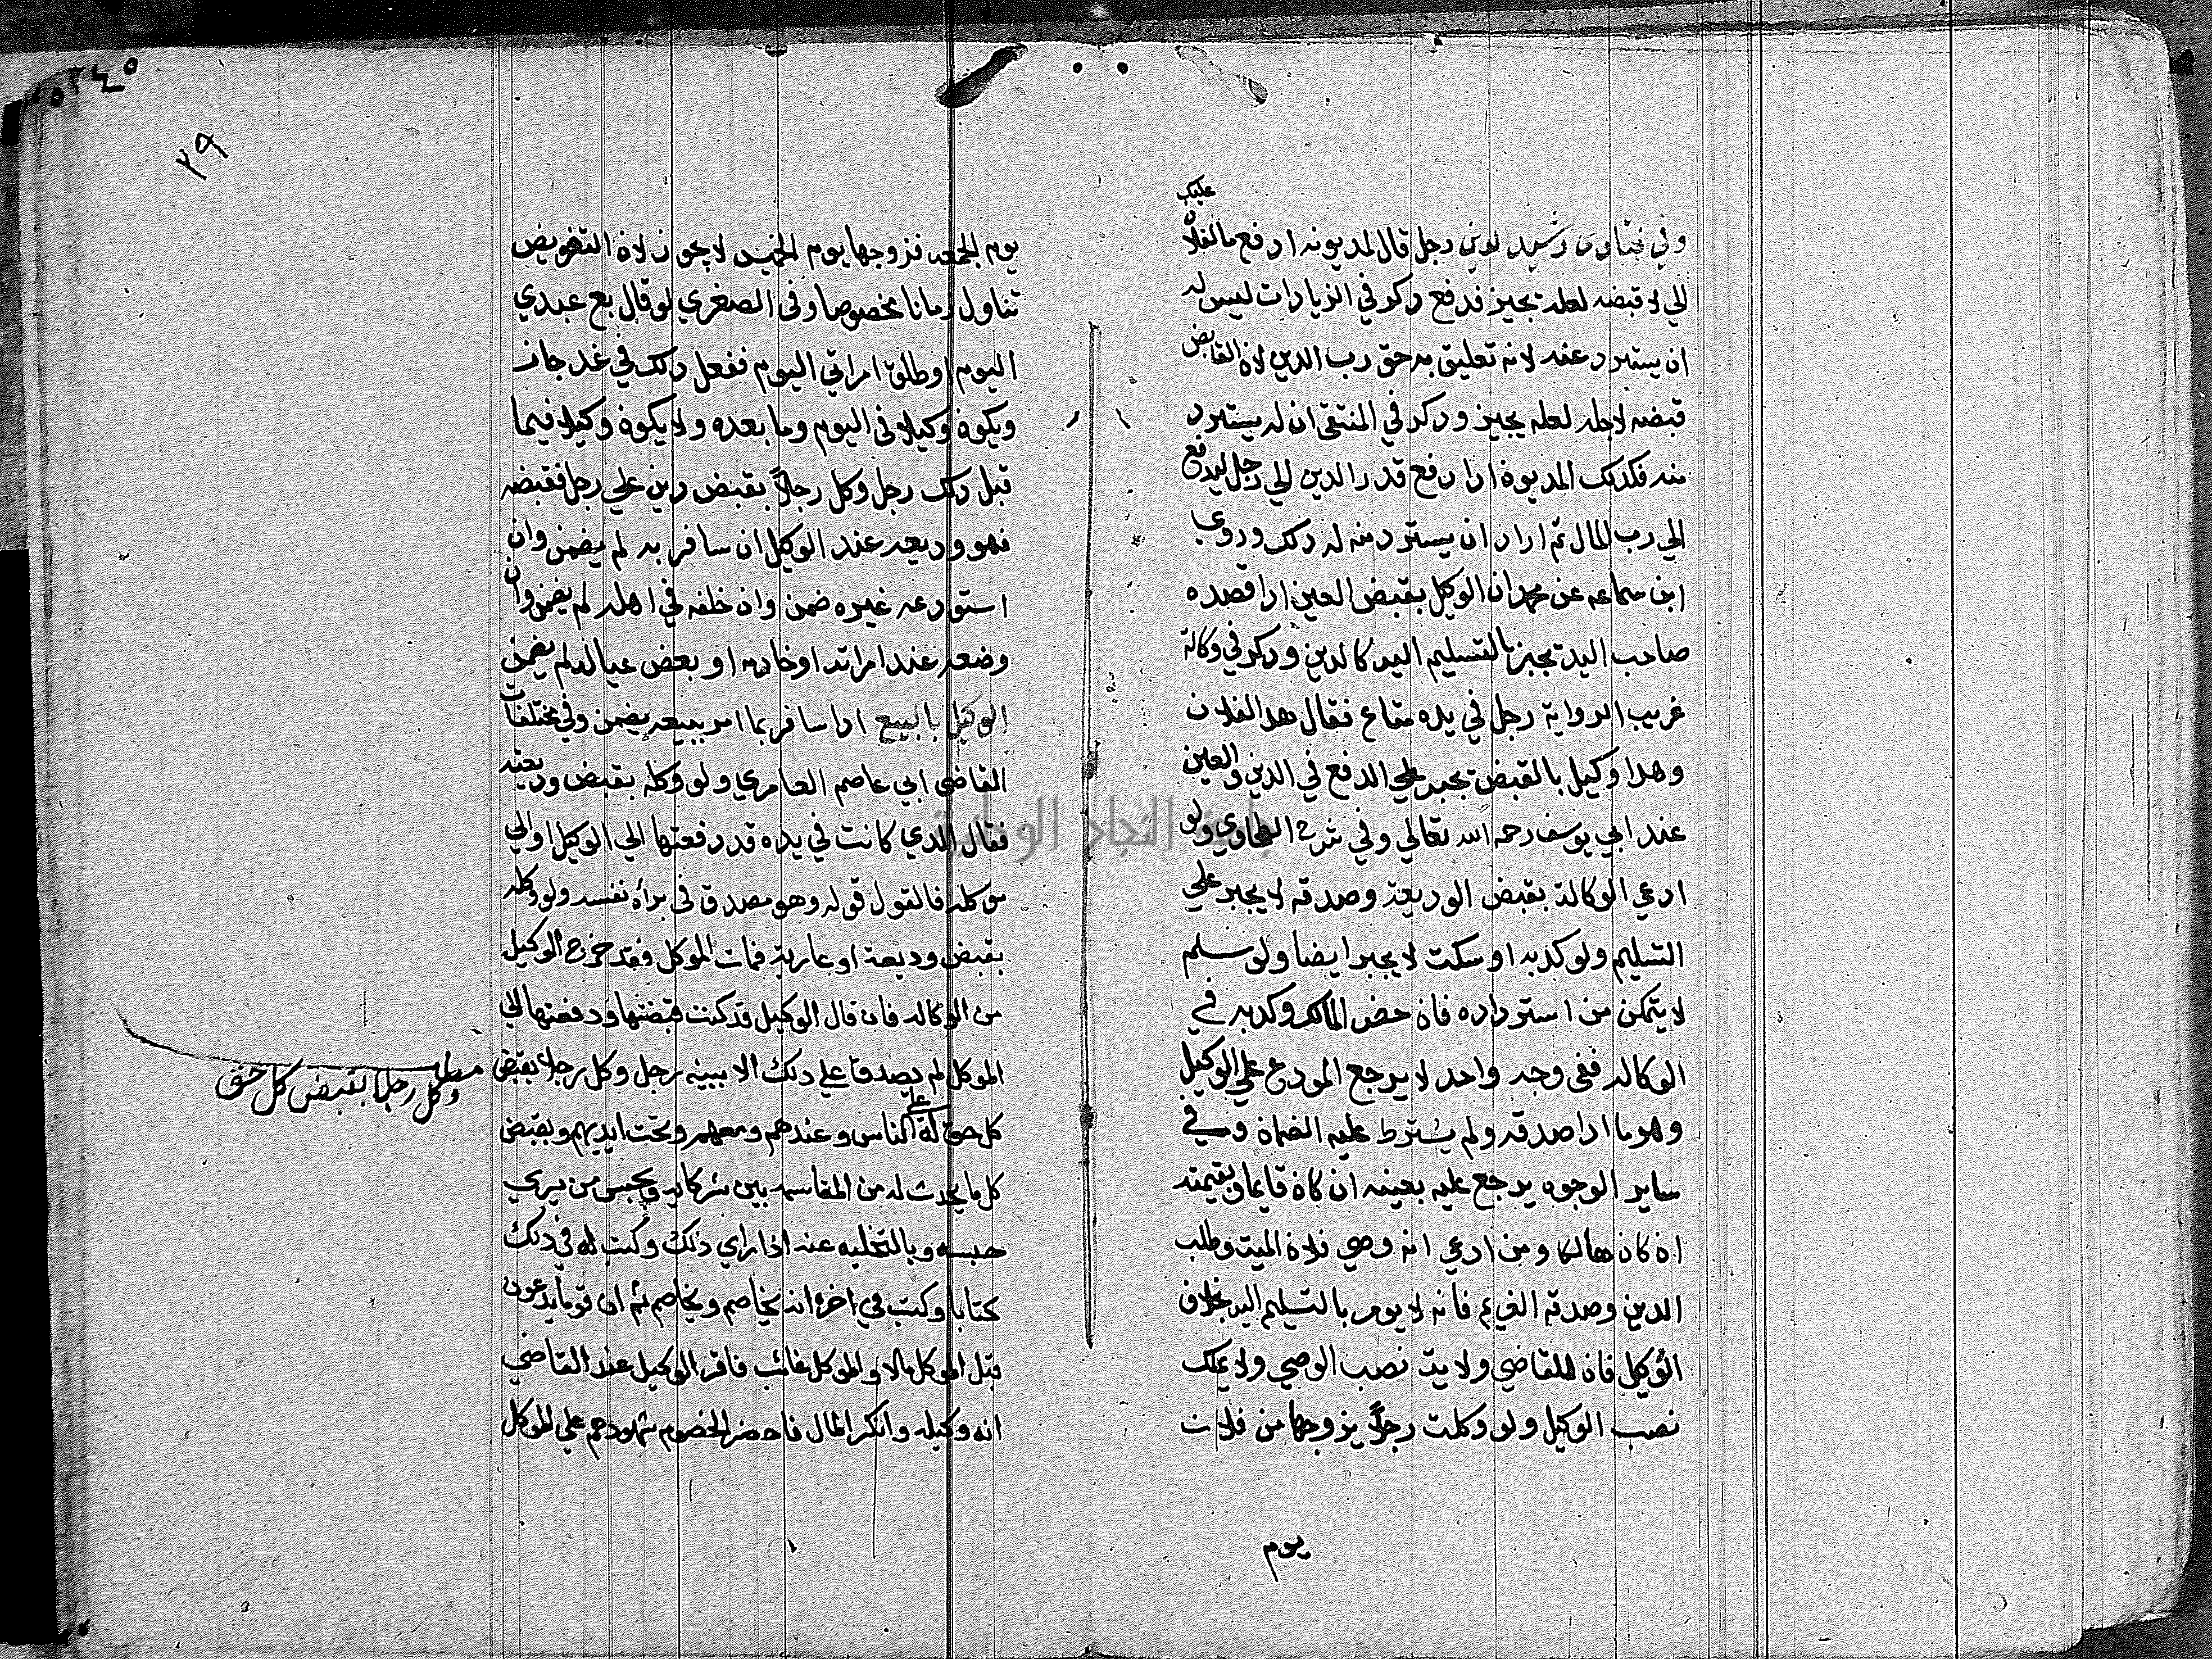 عليك
وفي فتاوى رشيد الدين رجل قال لمديونه ادفع مالفلان
الي لاقبضه لعله يجيز فدفع ذكر في الزيادات ليس له
ان يسترد عنه لانه تعليق به حق رب الدين لان القابض
قبضه لاجله لعله يجيز وذكر في المنتقى ان له يسترد
منه فكذلك المديون اذا دفع قدر الدين الي رجل ليدفع
الي رب المال ثم اراد ان يسترد منه له ذلك وروي
ابن سماعه عن محمد ان الوكيل بقبض العين اذا قصده
صاحب اليد يجبر بالتسليم اليه كالدين وذكر في وكالة
غريب الرواية رجل في يده متاع فقال هذا لفلان
وهذا وكيل بالقبض يجبر علي الدفع في الدين والعين
عند ابي يوسف رحمه الله تعالي وفي شرح الطحاوي ولو
ادعي الوكالة بقبض الوديعة وصدقه لا يجبر علي
التسليم ولو كذبه او سكت لا يجبر ايضا ولو سلم
لا يتمكن من استرداده فان حضر المالك وكذبه في
الوكاله ففي وجه واحد لا يرجع المودع علي الوكيل
وهو ما اذا صدقه ولم يشترط عليه الضمان وفي
ساير الوجوه يرجع عليه بعينه ان كان قايما وبقيمته
ان كان هالكا ومن ادعي انه وصي فلان الميت وطلب
الدين وصدقه الغريم فانه لا يومر بالتسليم اليه بخلاف
الوكيل فان للقاضي ولاية نصب الوصي ولا يملك
نصب الوكيل ولو وكلت رجلاً يزوجها من فلان
يوم
٢٩
يوم الجمعه فزوجها يوم الخميس لا يجوز لان التفويض
تناول زمانا مخصوصا وفي الصغري لو قال بع عبدي
اليوم او طلق امراتي اليوم ففعل ذلك في غد جاز
ويكون وكيلا في اليوم وما بعده ولا يكون وكيلا فيما
قبل ذلك رجل وكل رجلاً بقبض دين علي رجل فقبضه
فهو وديعه عند الوكيل ان سافر به لم يضمن وان
استودعه غيره ضمن وان خلفه في اهله لم يضمن وان
وضعه عند امراته او خادمه او بعض عياله لم يضمن
الوكيل بالبيع اذا سافر بما امر ببيعه يضمن وفي مختلفات
القاضي ابي عاصم العامري ولو وكله بقبض وديعته
فقال الذي كانت في يده قد دفعتها الي الوكيل او الي
موكله فالقول قوله وهو مصدق في برأة نفسه ولو وكله
بقبض وديعة او عارية فمات الموكل فقد خرج الوكيل
من الوكاله فان قال الوكيل قد كنت قبضتها ودفعتها الي
الموكل لم يصدق علي ذلك الا ببينه رجل وكل رجلا بقبض
كل حق له علي الناس وعندهم ومعهم وتحت ايديهم وبقبض
كل ما يحدث له من المقاسمه بين شركايه وبحبس من يري
حبسه وبالتخليه عنه اذا راي ذلك وكتب له في ذلك
كتابا وكتب في اخره انه يخاصم ويخاصم ثم ان قوما يدعون
قبل الموكل مالا والموكل غائب فاقر الوكيل عند القاضي
انه وكيله وانكر المال فاحضر الخصوم شهودهم علي الموكل
مطلب
وكل رجلا بقبض كل حق
جامعة النجاح الوطنية